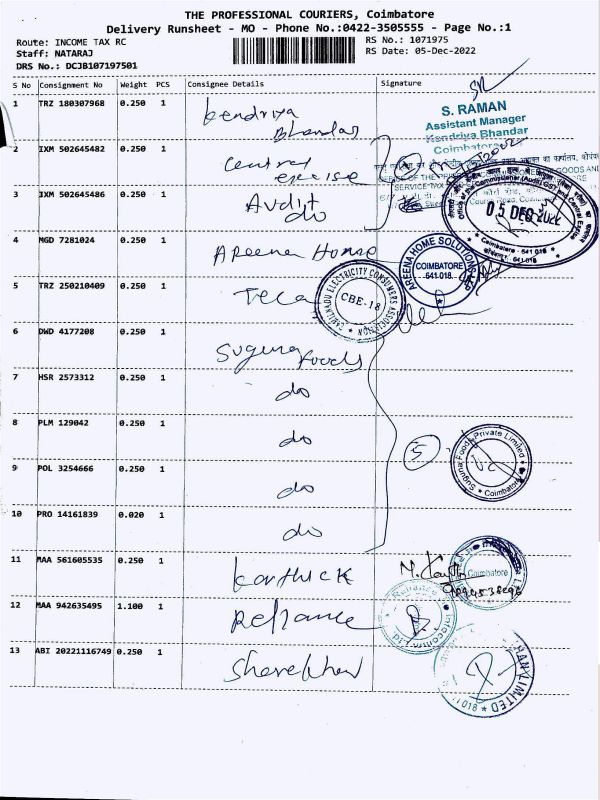 THE PROFESSIONAL COURIERS, Coimbatore
Delivery Runsheet - MO - Phone No.:0422-3505555 - Page No.:1
Route: INCOME TAX RC
Staff: NATARAJ
DRS No.: DCJB107197501
RS No.: 1071975
RS Date: 05-Dec-2022
S No Consignment No Weight PCS Consignee Details Signature
1 TRZ 180307968 0.250 1 kendriya Bhandar
S. RAMAN
Assistant Manager
Kendriya Bhandar
Coimbatore
2 IXM 502645482 0.250 1 central excise
3 IXM 502645486 0.250 1 Audit do
05 DEC 2022
Coimbatore - 641 018
4 MGD 7281024 0.250 1 Areena Home
AREENA HOME SOLUTIONS LLP
COIMBATORE
641 018.
5 TRZ 250210409 0.250 1 Teca
TAMILNADU ELECTRICITY CONSUMERS ASSOCIATION
CBE-18
6 DWD 4177208 0.250 1 Suguna foods
7 HSR 2573312 0.250 1 do
8 PLM 129042 0.250 1 do
5
Suguna Foods Private Limited
Coimbatore
9 POL 3254666 0.250 1 do
10 PRO 14161839 0.020 1 do
11 MAA 561605535 0.250 1 karthick
Coimbatore
12 MAA 942635495 1.100 1 Reliance
Reliance Infocomm
13 ABI 20221116749 0.250 1 Sharekhan
HAN LIMITED
018